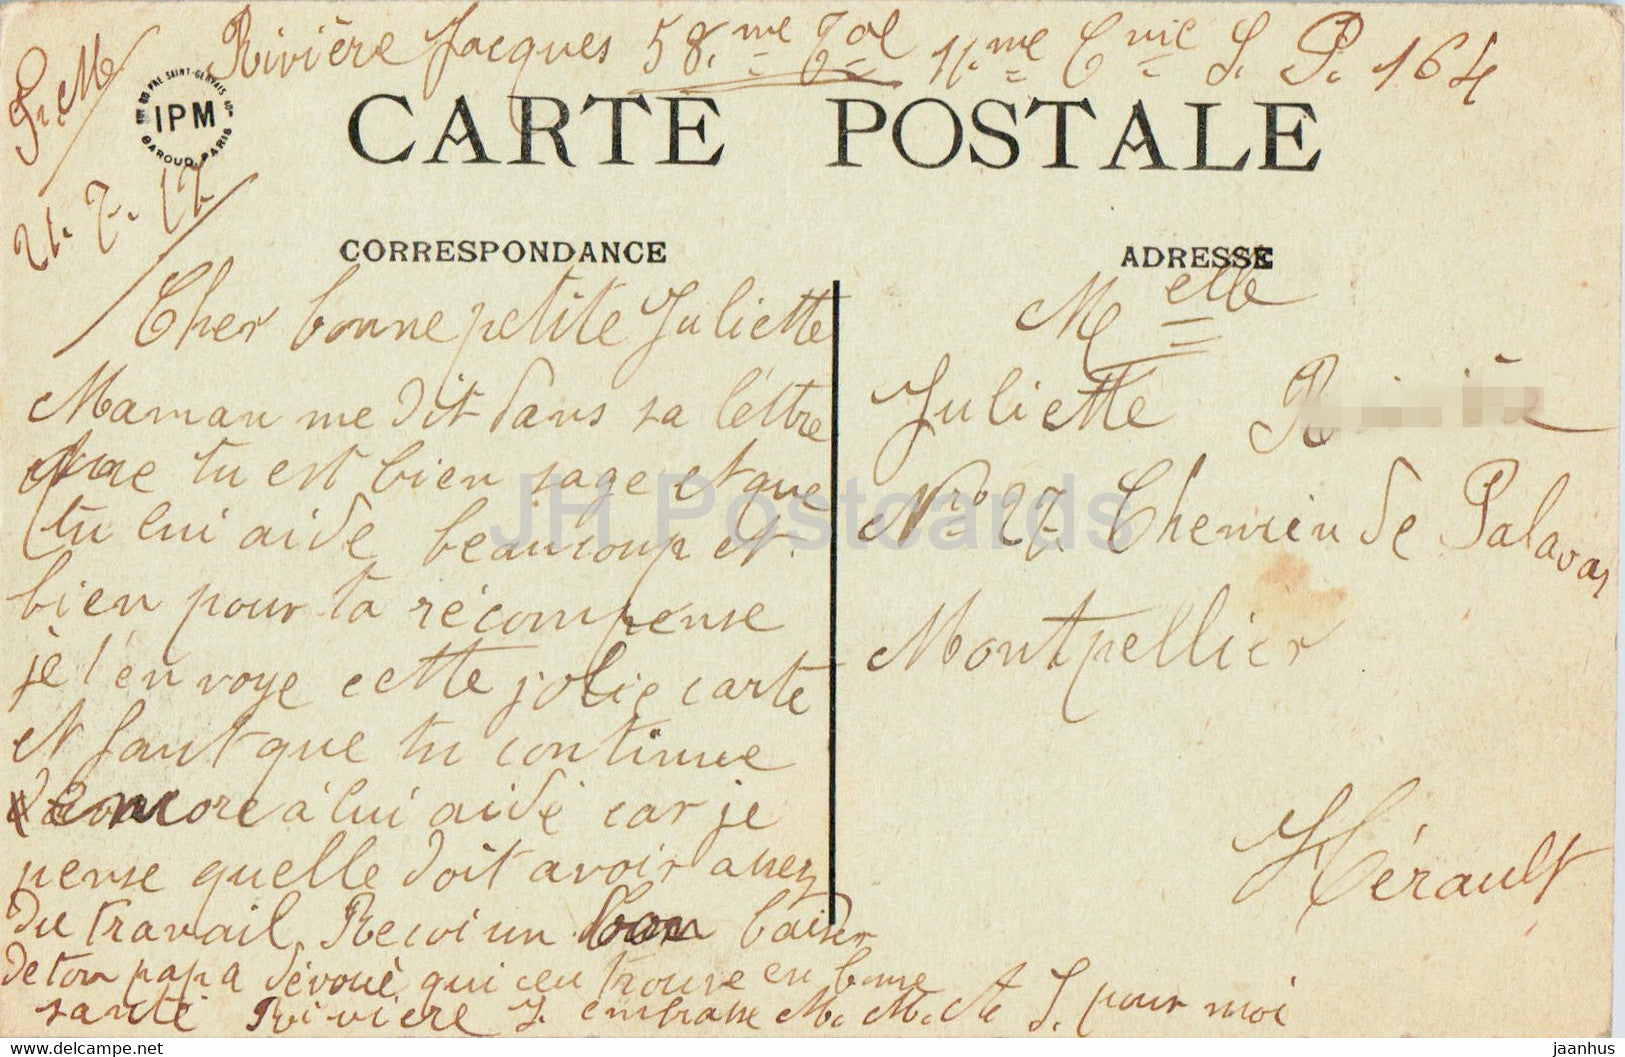 Rivière Jacques 58.me Tal 11.me Cnie S. P. 164
F.M
21.7.17
RUE DU PRE SAINT-GERVAIS
IPM
BAROUD, PARIS
CARTE POSTALE
CORRESPONDANCE
Cher bonne petite Juliette
Maman me dit dans sa léttre
que tu est bien sage et que
tu lui aide beaucoup et
bien pour ta récompense
je t'envoye cette jolie carte
et faut que tu continue
encore à lui aidé car je
pense quelle doit avoir assez
du travail. Recoi un bon baiser
de ton papa dévoué qui ceu trouve en bone
santé Rivière J. embrasse M. M. et J. pour moi
ADRESSE
Melle
Juliette
No 27 Chemin de Palavas
Montpellier
Hérault
JH Postcards
delcampe.net
jaanhus